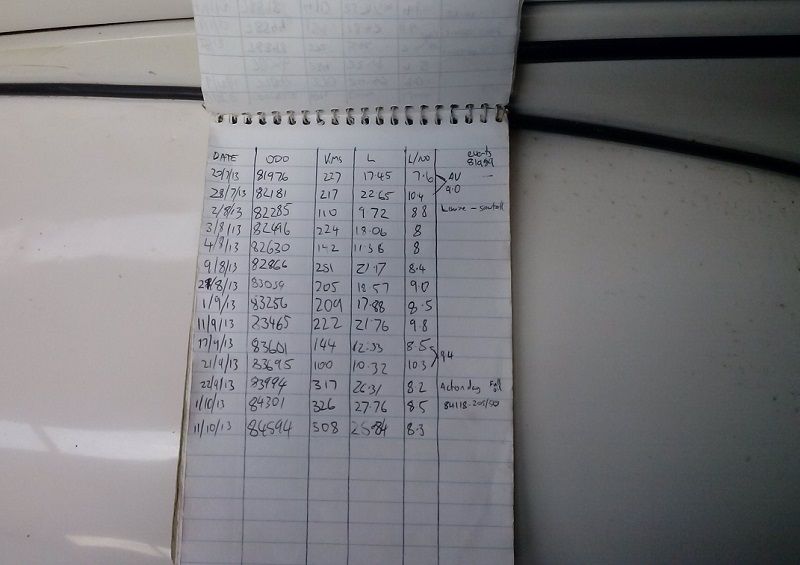 DATE ODO KMS L L/100 events 81989
20/7/13 81976 227 17.45 7.6 AV
28/7/13 82181 217 22.65 10.4 9.0
2/8/13 82285 110 9.72 8.8
3/8/13 82496 224 18.06 8
4/8/13 82630 142 11.36 8
9/8/13 82866 251 21.17 8.4
/8/13 83059 205 18.57 9.0
1/9/13 83256 209 17.88 8.5
11/9/13 83465 222 21.76 9.8
17/9/13 83601 144 12.33 8.5
9.4
21/9/13 83695 100 10.32 10.3
22/9/13 83994 317 26.31 8.2
1/10/13 84301 326 27.76 8.5 84118-205/50
11/10/13 84594 308 25.84 8.3